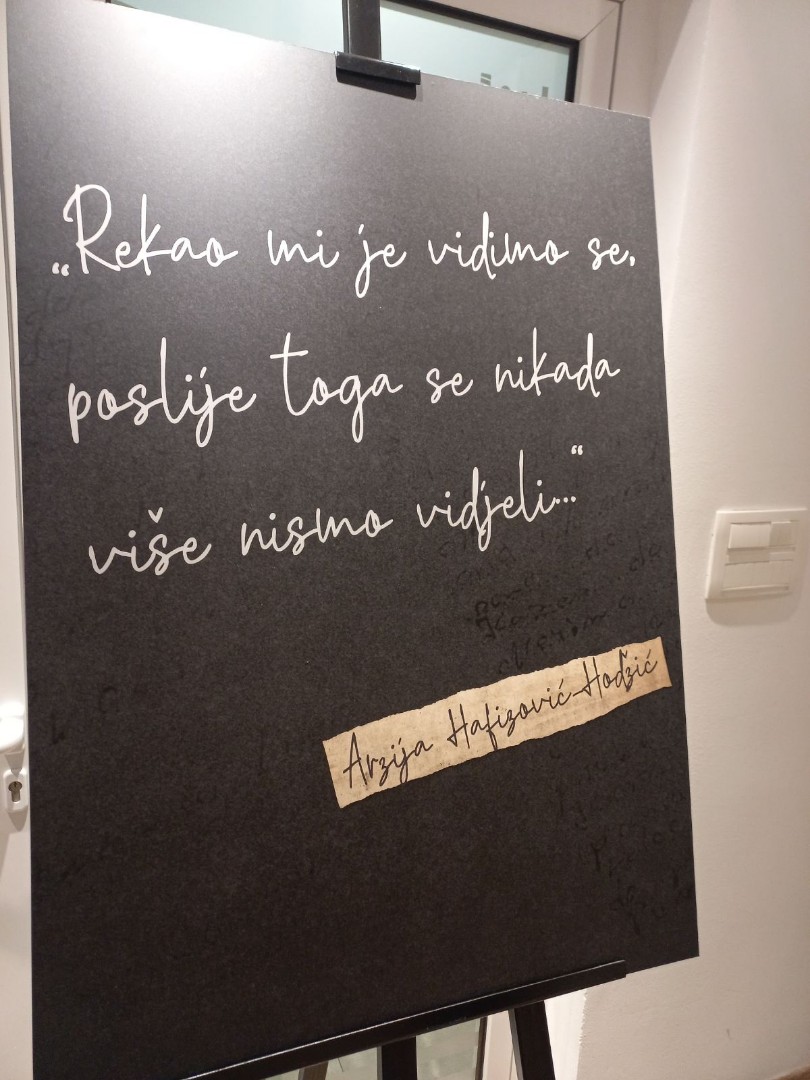 „Rekao mi je vidimo se,
poslije toga se nikada
više nismo vidjeli...“
Arzija Hafizović-Hodžić